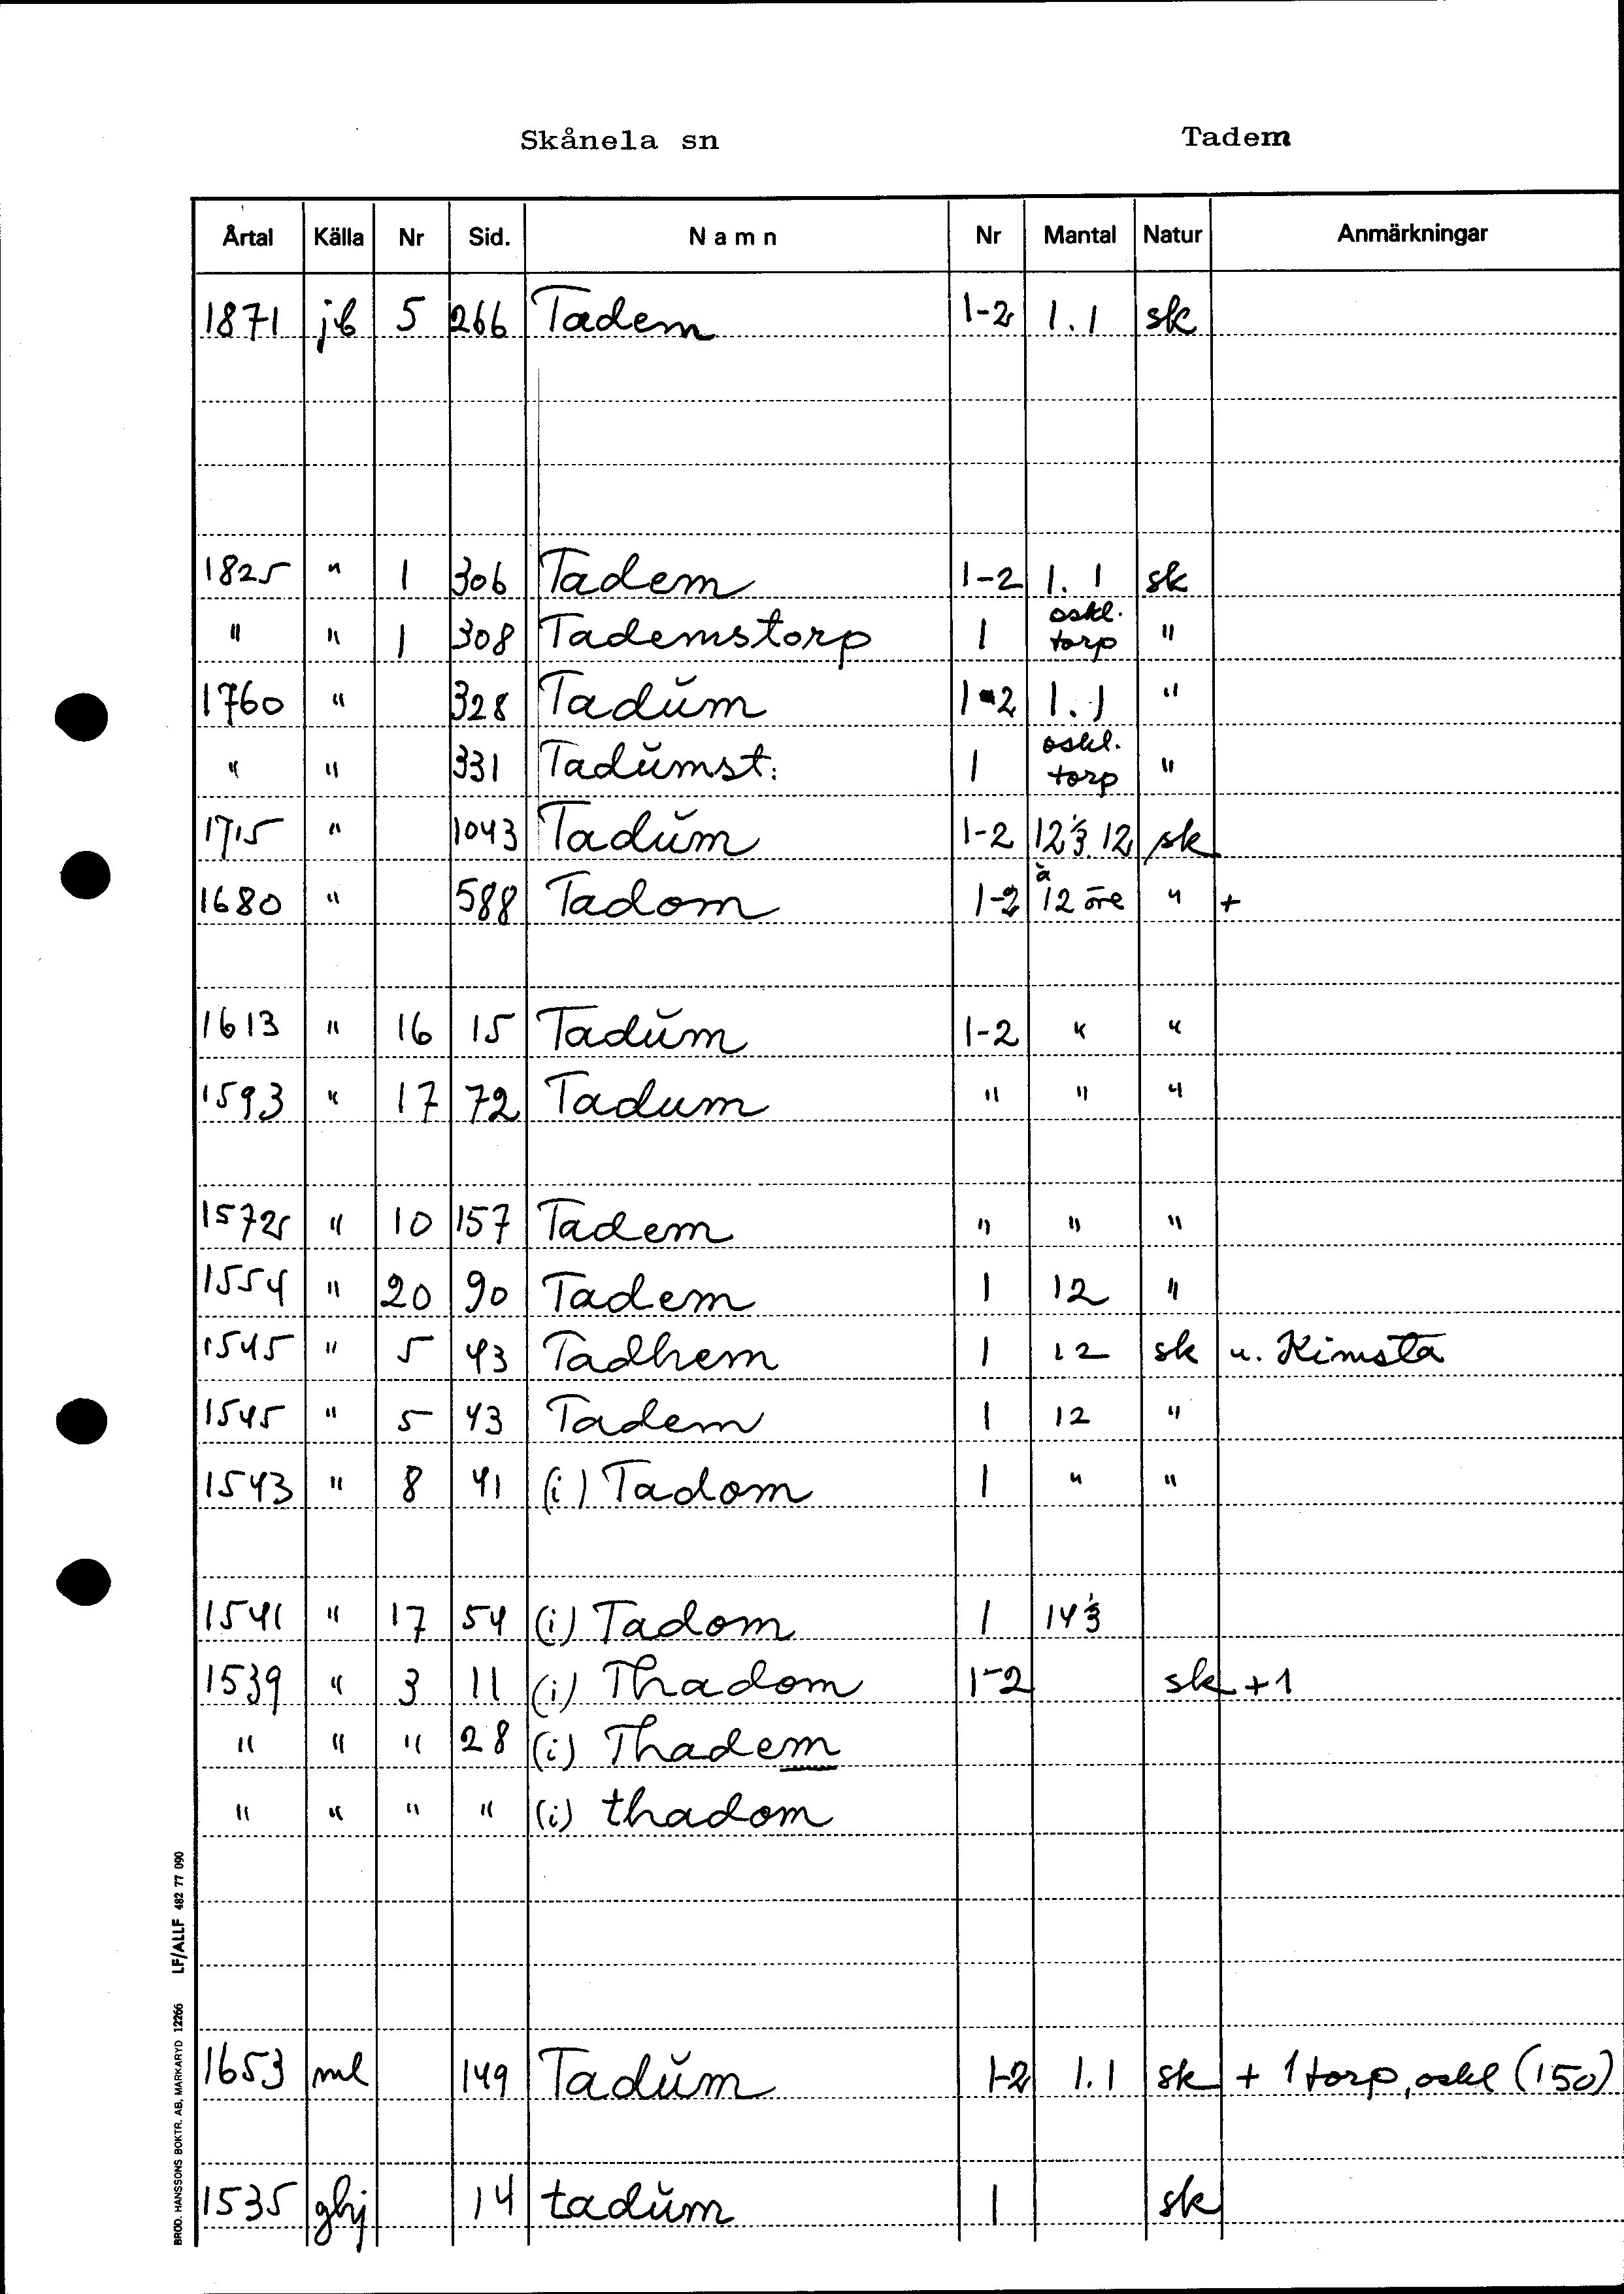 Skånela sn Tadem
Årtal Källa Nr Sid. Namn Nr Mantal Natur Anmärkningar
1871 jb 5 266 Tadem 1-2 1.1 sk
1825 " 1 306 Tadem 1-2 1.1 sk
" " 1 308 Tademstorp 1 oskl. torp "
1760 " 328 Tadŭm 1-2 1.1 "
" " 331 Tadŭmst: 1 oskl. torp "
1715 " 1043 Tadŭm 1-2 12⅓ 12 sk
1680 " 588 Tadom 1-2 à 12 öre " +
1613 " 16 15 Tadŭm 1-2 " "
1593 " 17 72 Tadum " " "
1572 " 10 157 Tadem " " "
1554 " 20 90 Tadem 1 12 "
1545 " 5 43 Tadhem 1 12 sk u. Kimsta
1545 " 5 43 Tadem 1 12 "
1543 " 8 41 (i) Tadom 1 " "
1541 " 17 54 (i) Tadom 1 14⅓
1539 " 3 11 (i) Thadom 1-2 sk +1
" " " 28 (i) Thadem
" " " " (i) thadom
1653 ml 149 Tadŭm 1-2 1.1 sk + 1 torp, oskl (150)
1535 ghj 14 tadŭm 1 sk
BROD. HANSSONS BOKTR. AB, MARKARYD 12266 LF/ALLF 482 77 090